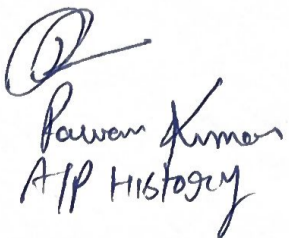 Pawan Kumar
A/P History